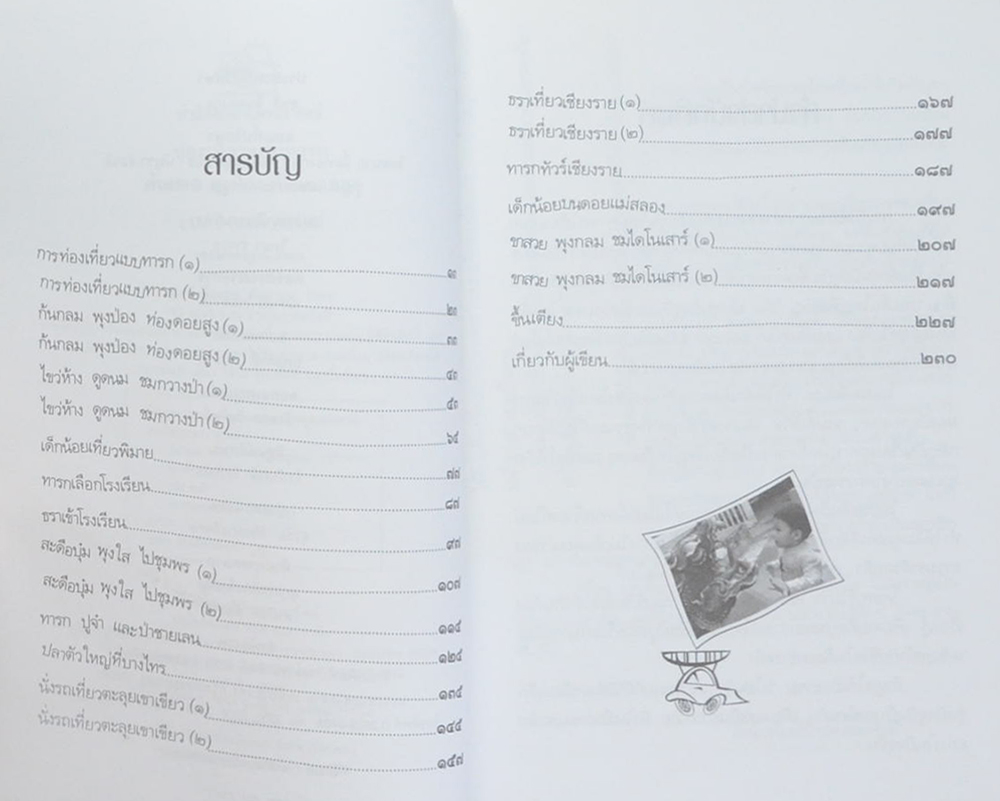 สารบัญ
การท่องเที่ยวแบบทารก (๑)
การท่องเที่ยวแบบทารก (๒)
ก้นกลม พุงป่อง ท่องดอยสูง (๑)
ก้นกลม พุงป่อง ท่องดอยสูง (๒)
ไขว่ห้าง ดูดนม ชมกวางป่า (๑)
ไขว่ห้าง ดูดนม ชมกวางป่า (๒)
เด็กน้อยเที่ยวพิมาย ๗๗
ทารกเลือกโรงเรียน ๘๗
ธราเข้าโรงเรียน ๙๗
สะดือบุ๋ม พุงใส ไปชุมพร (๑) ๑๐๗
สะดือบุ๋ม พุงใส ไปชุมพร (๒)
ทารก ปูจ๋า และป่าชายเลน
ปลาตัวใหญ่ที่บางไทร
นั่งรถเที่ยวตะลุยเขาเขียว (๑)
นั่งรถเที่ยวตะลุยเขาเขียว (๒) ๑๕๗
ธราเที่ยวเชียงราย (๑) ๑๖๗
ธราเที่ยวเชียงราย (๒) ๑๗๗
ทารกทัวร์เชียงราย ๑๘๗
เด็กน้อยบนดอยแม่สลอง ๑๙๗
ขาสวย พุงกลม ชมไดโนเสาร์ (๑) ๒๐๗
ขาสวย พุงกลม ชมไดโนเสาร์ (๒) ๒๑๗
ขึ้นเตียง ๒๒๗
เกี่ยวกับผู้เขียน ๒๓๐